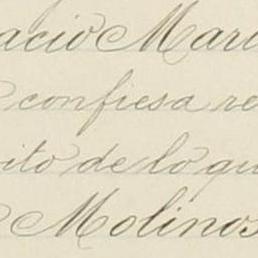 acio Mari
confiesa re
ito de lo qu
Molinos